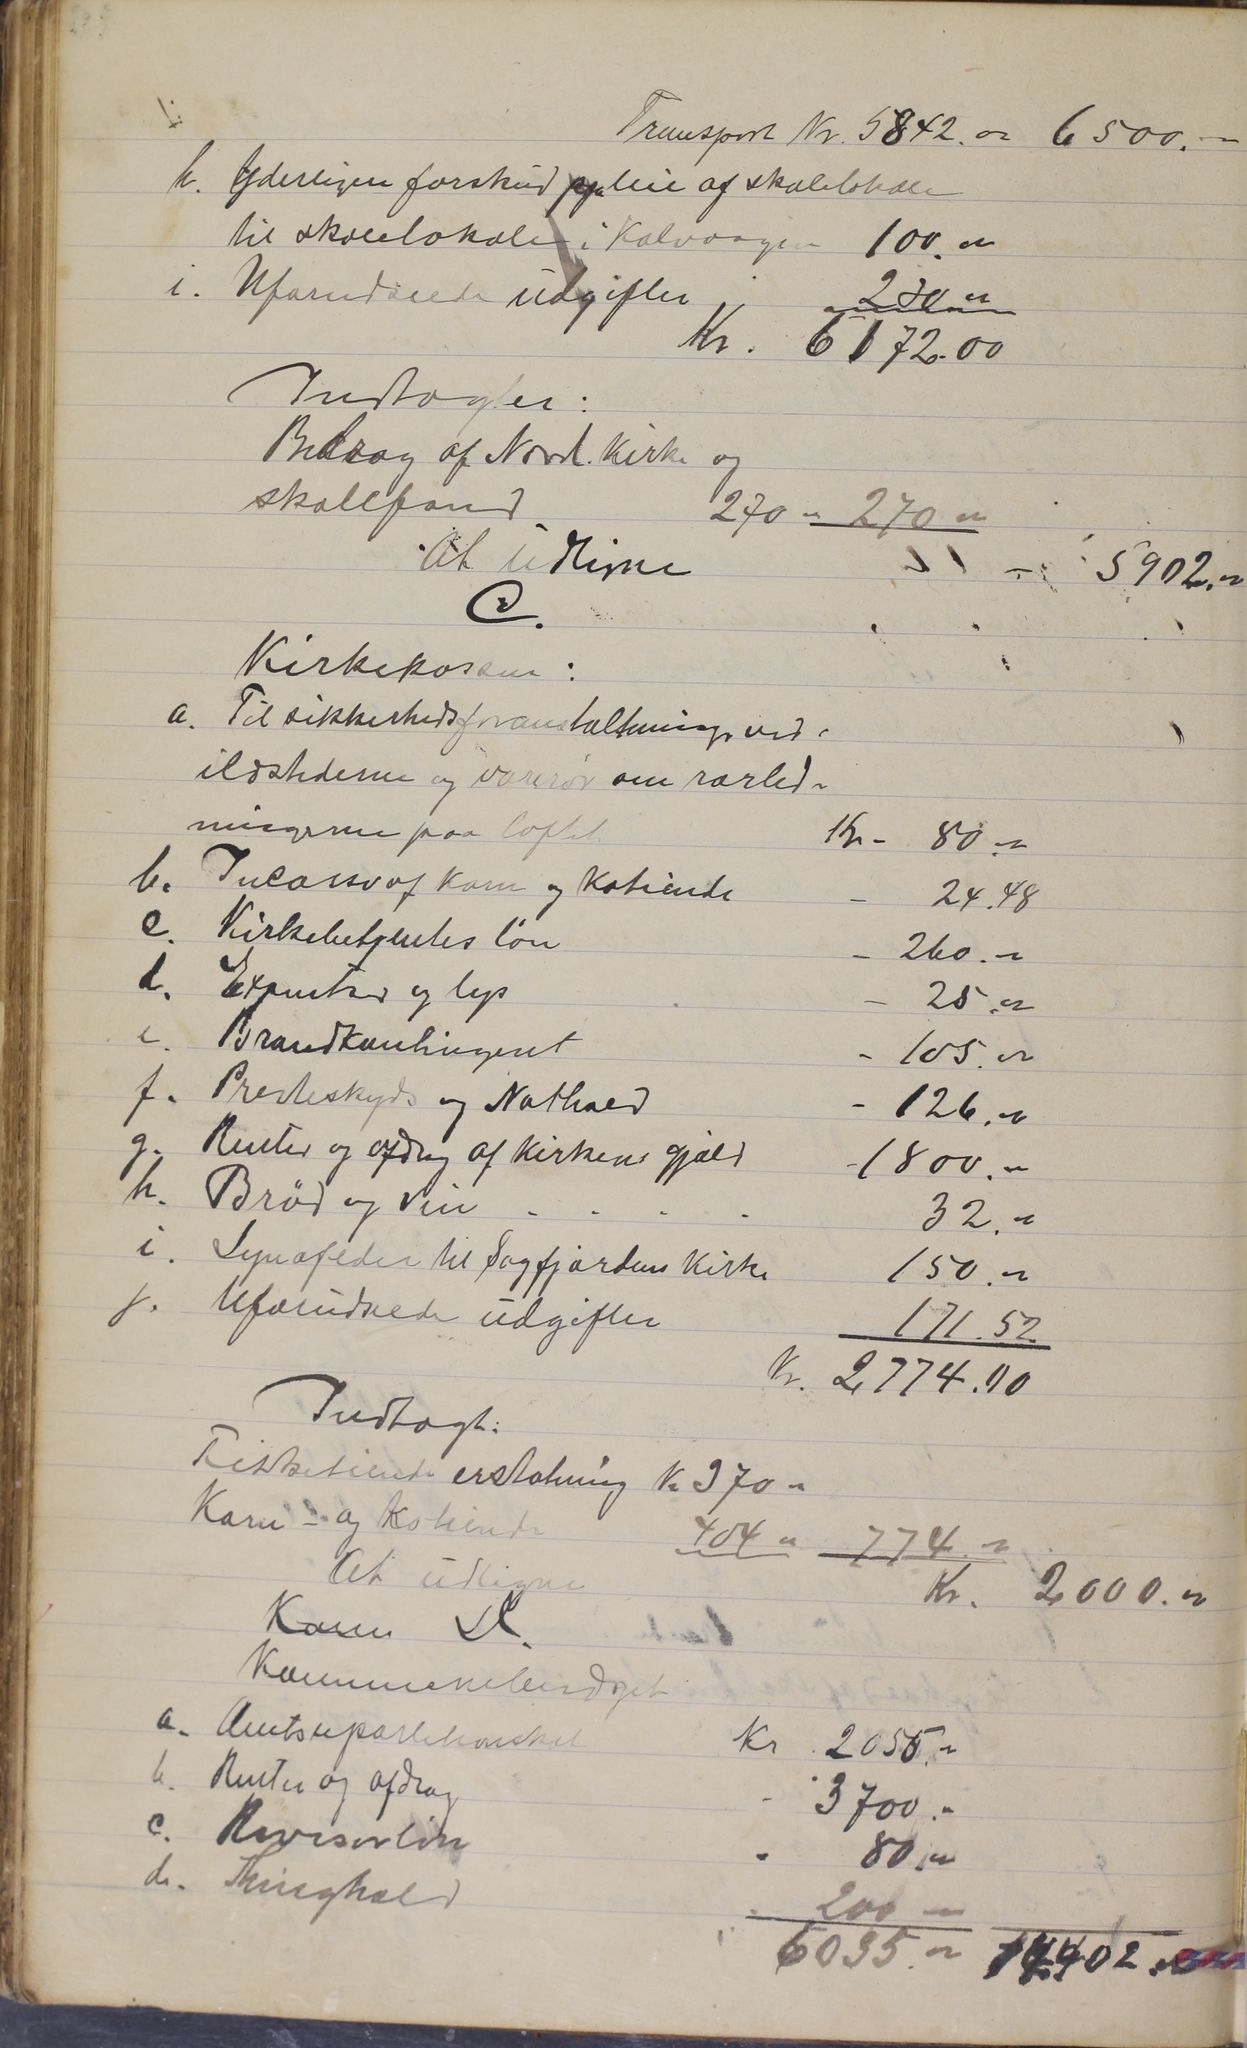 Transport Kr. 5842.- 6500.-
h. Yderligere forskud paa leie af skolelokale
til skolelokale i Kalvaagen 100.-
i. Uforudseede udgifter 230.-
Kr. 6172.00
Indtægter:
Bidrag af Nord. Kirke og
skolefond 270 - 270 -
At udligne - 5902.-
C.
Kirkekassen:
a. Til sikkerhedsforanstaltninger ved
ildstederne og om rørled-
ningerne paa loftet Kr - 80.-
b. Incasso af korn og kotiende - 24.48
c. Kirkebetjentes løn - 260.-
d. Expenser og lys - 25.-
e. Brandkontingent - 105.-
f. Presteskyds og Nathold - 126.-
g. Renter og afdrag af kirkens gjæld - 1800.-
h. Brød og vin - - - - 32.-
i. Lynafleder til Sagfjordens kirke 150.-
j. Uforudseede udgifter 171.52
Kr. 2774.00
Indtægt:
Fisketiende erstatning Kr 370 -
Korn- og Kotiende 404 - 774 -
At udligne Kr. 2000.-
D.
Kommunebudget
a. Amtsrepartitionsskat Kr. 2055.-
b. Renter og afdrag - 3700.-
c. Revisorløn - 80.-
d. Thinghold - 200 -
6035.- 14402.-